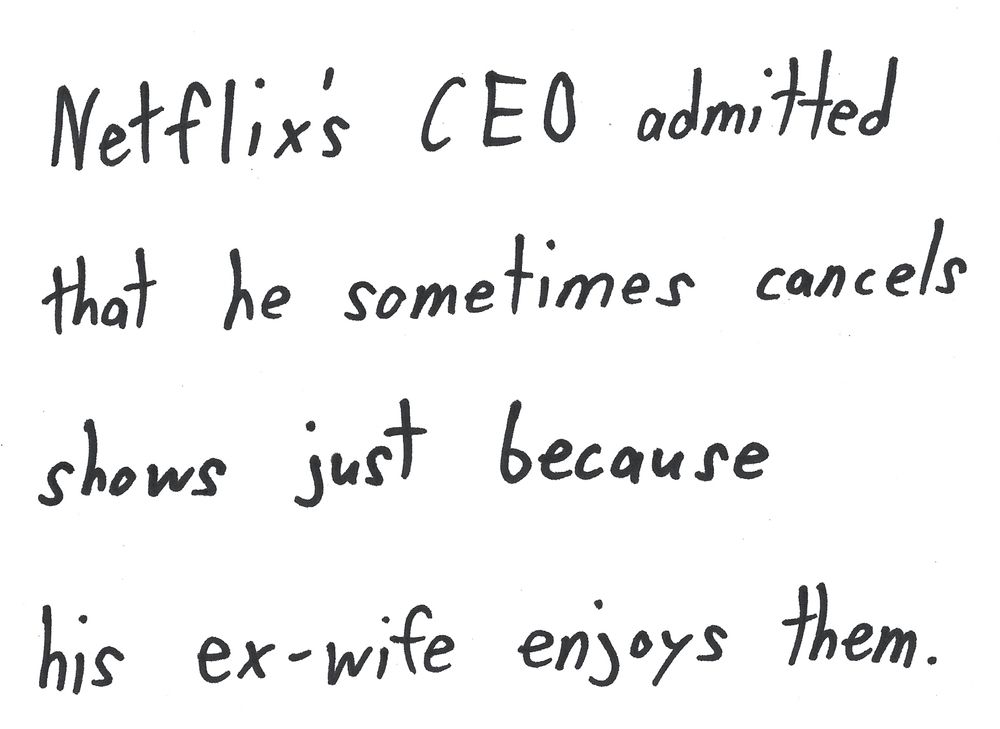 Netflix's CEO admitted
that he sometimes cancels
shows just because
his ex-wife enjoys them.